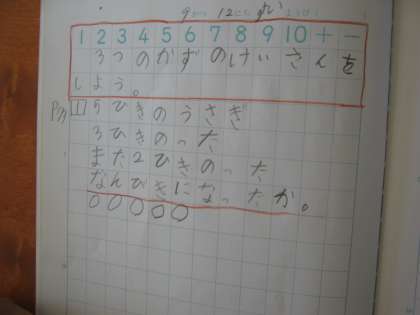 9 12
1 2 3 4 5 6 7 8 9 10 + −
3つのかずのけいさんを
しよう。
P31 1 5ひきのうさぎ
3びきのった
また2ひきのった
なんびきになったか。
○○○○○